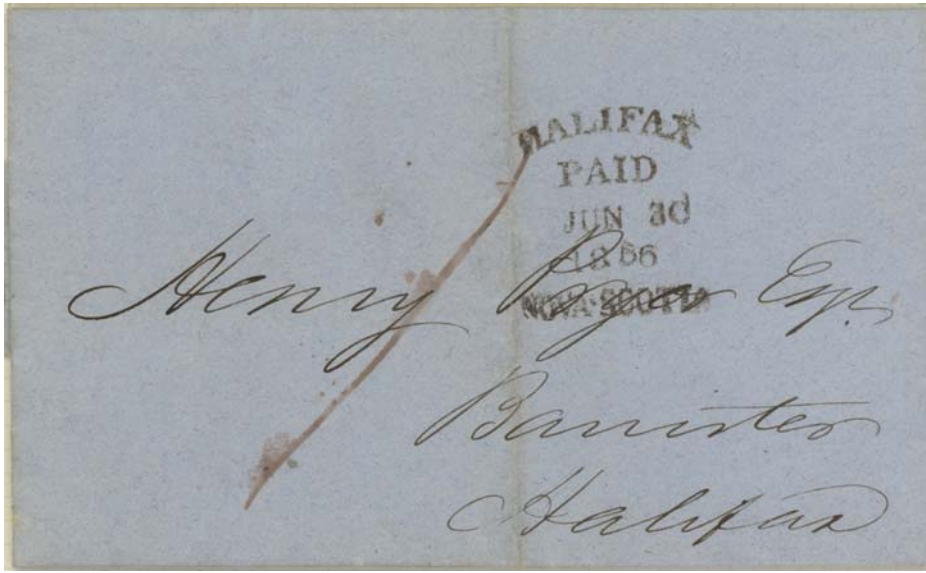 HALIFAX
PAID
JUN 30
1866
NOVA·SCOTIA
Henry Pryor Esqr.
Barrister
Halifax